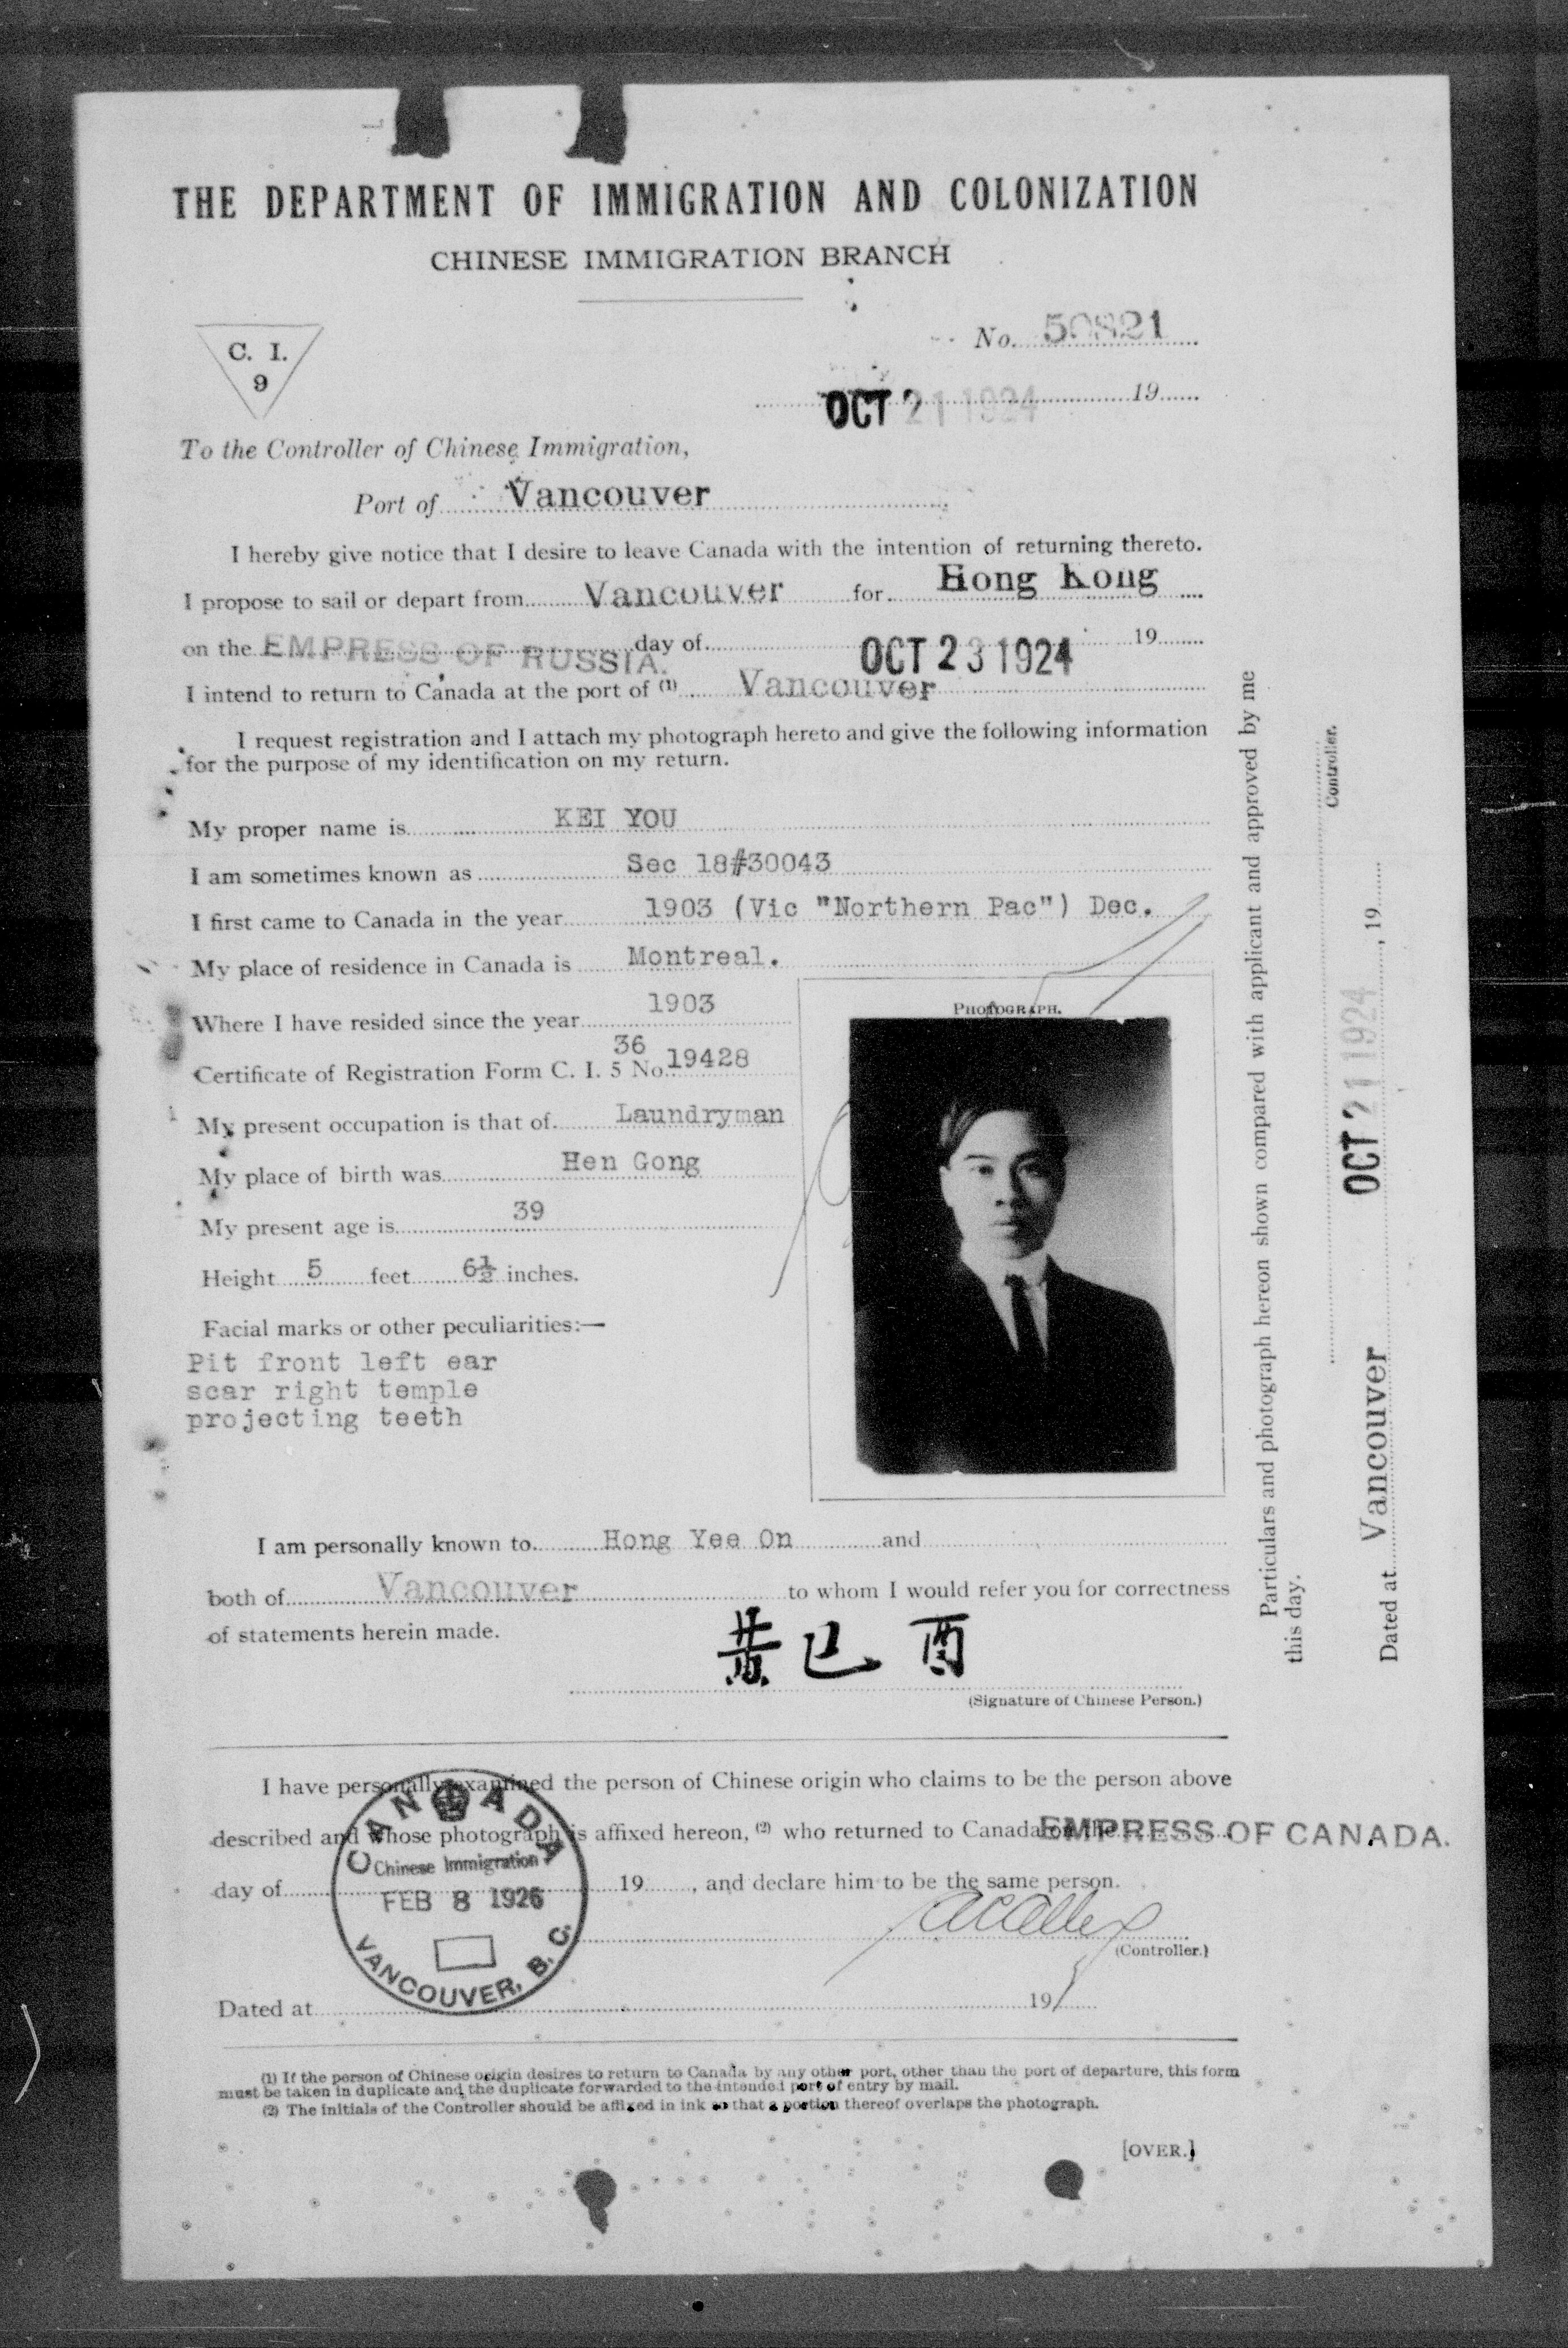 THE DEPARTMENT OF IMMIGRATION AND COLONIZATION
CHINESE IMMIGRATION BRANCH
C. I.
9
No. 50821
OCT 21 1924 19
To the Controller of Chinese Immigration,
Port of Vancouver
I hereby give notice that I desire to leave Canada with the intention of returning thereto.
I propose to sail or depart from Vancouver for Hong Kong
on the EMPRESS OF RUSSIA. day of OCT 23 1924 19
I intend to return to Canada at the port of (1) Vancouver
I request registration and I attach my photograph hereto and give the following information
for the purpose of my identification on my return.
My proper name is KEI YOU
I am sometimes known as Sec 18#30043
I first came to Canada in the year 1903 (Vic "Northern Pac") Dec.
My place of residence in Canada is Montreal.
Where I have resided since the year 1903
36
Certificate of Registration Form C. I. 5 No. 19428
My present occupation is that of Laundryman
My place of birth was Hen Gong
My present age is 39
Height 5 feet 6½ inches.
Facial marks or other peculiarities:—
Pit front left ear
scar right temple
projecting teeth
PHOTOGRAPH.
I am personally known to Hong Yee On and
both of Vancouver to whom I would refer you for correctness
of statements herein made.
黃已酉
(Signature of Chinese Person.)
I have personally examined the person of Chinese origin who claims to be the person above
described and whose photograph is affixed hereon, (2) who returned to Canada on the EMPRESS OF CANADA.
day of 19 , and declare him to be the same person.
(Controller.)
Dated at 19
CANADA
Chinese Immigration
FEB 8 1926
VANCOUVER, B. C.
(1) If the person of Chinese origin desires to return to Canada by any other port, other than the port of departure, this form
must be taken in duplicate and the duplicate forwarded to the intended port of entry by mail.
(2) The initials of the Controller should be affixed in ink so that a portion thereof overlaps the photograph.
[OVER.]
Particulars and photograph hereon shown compared with applicant and approved by me
this day.
Controller.
Dated at Vancouver OCT 21 1924 , 19